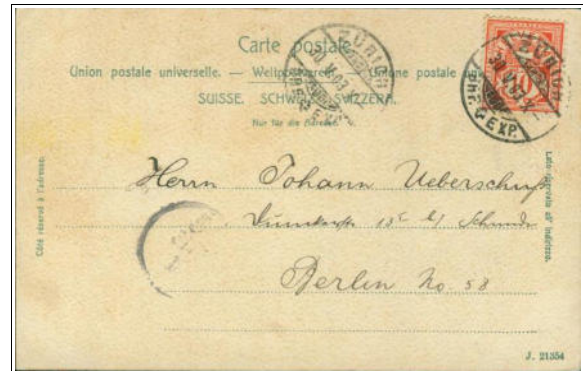 Carte postale.
Union postale universelle. — Weltpostverein. — Unione postale
SUISSE. SCHWEIZ. SVIZZERA.
Nur für die Adresse.
ZÜRICH
30.V.03
BRF. EXP.
ZÜRICH
30.V.03
BRF. EXP.
10
Côté réservé à l'adresse.
Lato riservato all' indirizzo.
Herrn Johann Ueberschuß
b/ Schmidt
Berlin No. 58
J. 21354